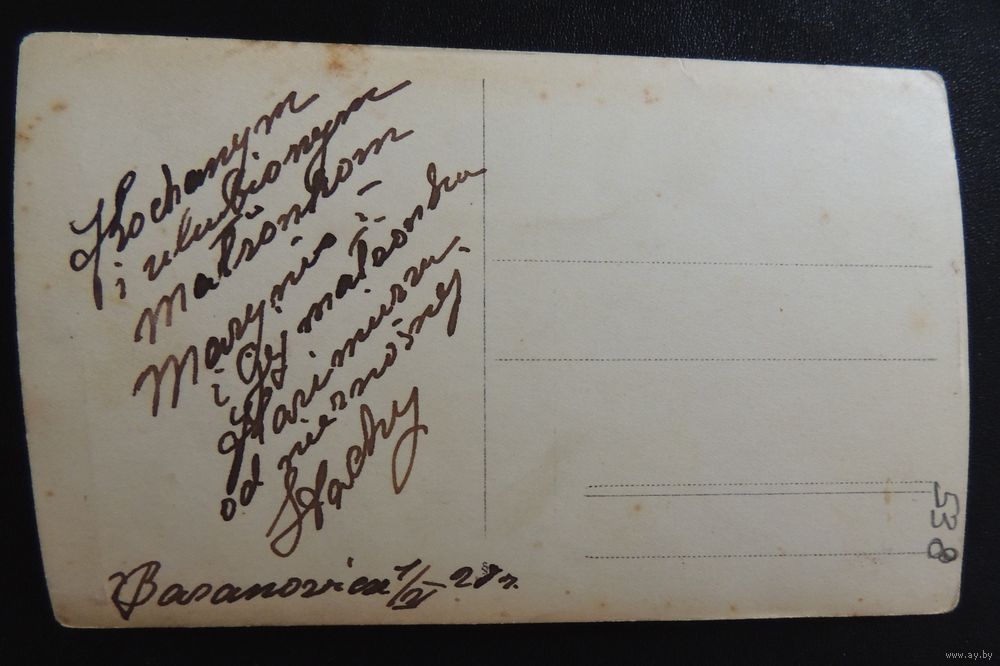 Kochanym
i ulubionym
małżonkom
Maryni
i Jej małżonka
Kazimierzu
od nieznośnej
Baranowicze 1/V 28 r.
538
www.ay.by